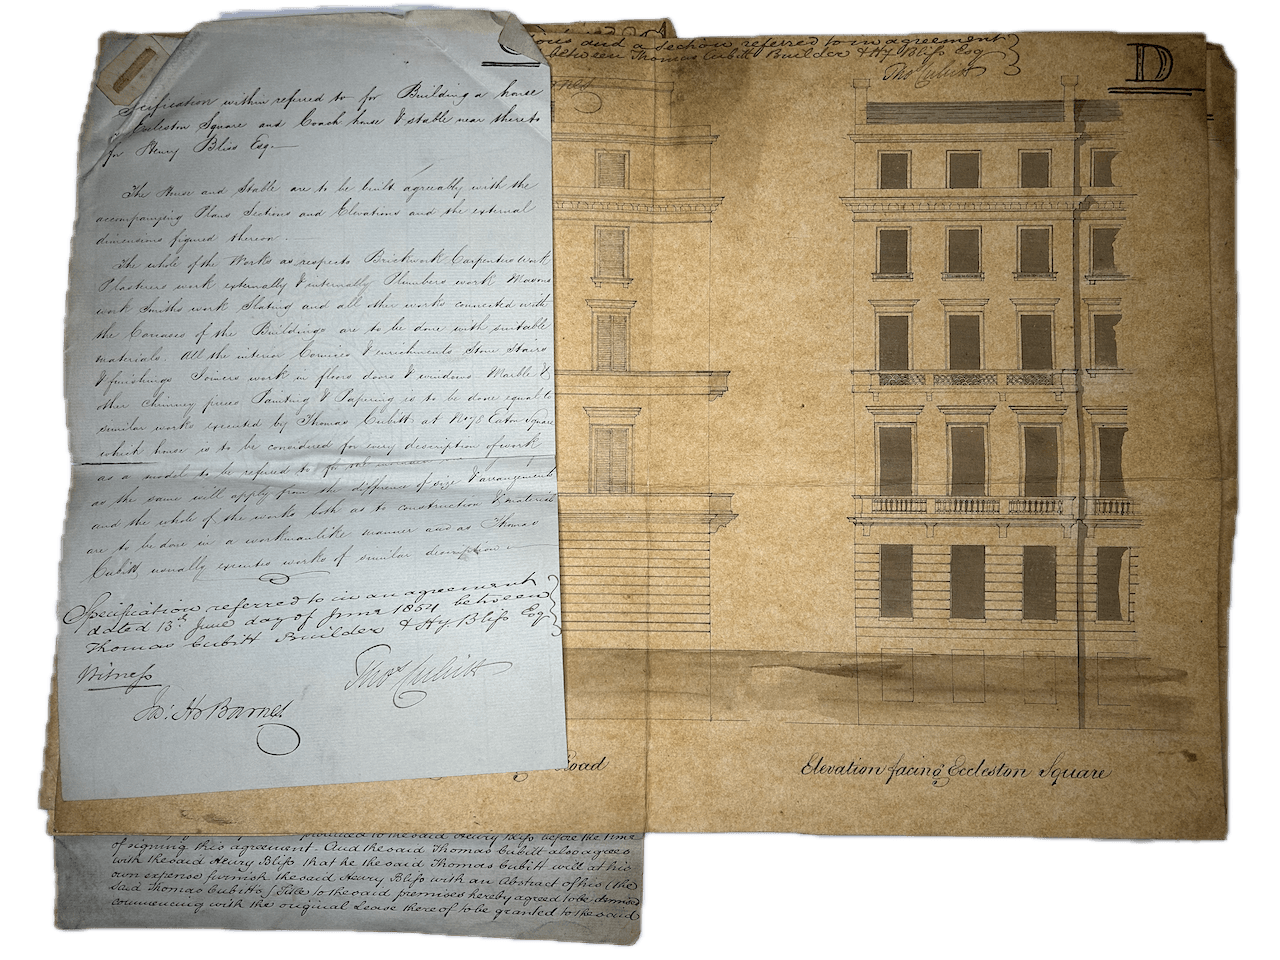 Specification within referred to for Building a house
Eccleston Square and Coach house & stable near thereto
for Henry Bliss Esq.
The House and Stable are to be built agreeably with the
accompanying Plans Sections and Elevations and the external
dimensions figured thereon.
The whole of the Works as respects Brickwork Carpenters work
Plasterers work externally & internally Plumbers work Masons
work Smiths work Slating and all other works connected with
the Carcases of the Buildings are to be done with suitable
materials. All the interior Cornices & enrichments Stone Stairs
& finishings Joiners work in floors doors & windows Marble &
other Chimney pieces Painting & Papering is to be done equal to
similar works executed by Thomas Cubitt at Eaton Square
which house is to be considered for every description of work
as a model to be referred to
as the same will apply from the difference of size & arrangement
and the whole of the works both as to construction & materials
are to be done in a workmanlike manner and as Thomas
Cubitt usually executes works of similar description.
Specification referred to in an agreement
dated 13th June day of June 1854 between
Thomas Cubitt Builder & Hy. Bliss Esq
Witness
Thos Cubitt
Jas. Hr Barnes
and a section referred to in agreement
between Thomas Cubitt Builder & Hy Bliss Esq
Thos Cubitt
D
Road
Elevation facing Eccleston Square
produced to the said Henry Bliss before the time
of signing this agreement. And the said Thomas Cubitt also agrees
with the said Henry Bliss that he the said Thomas Cubitt will at his
own expense furnish the said Henry Bliss with an Abstract of his (the
said Thomas Cubitt's) Title to the said premises hereby agreed to be demised
commencing with the original Lease thereof to be granted to the said